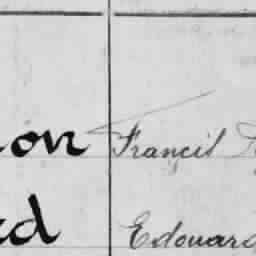 on Francis
ed Edouard